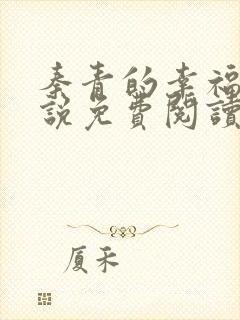 秦青的幸福
说免費閱讀
厦禾